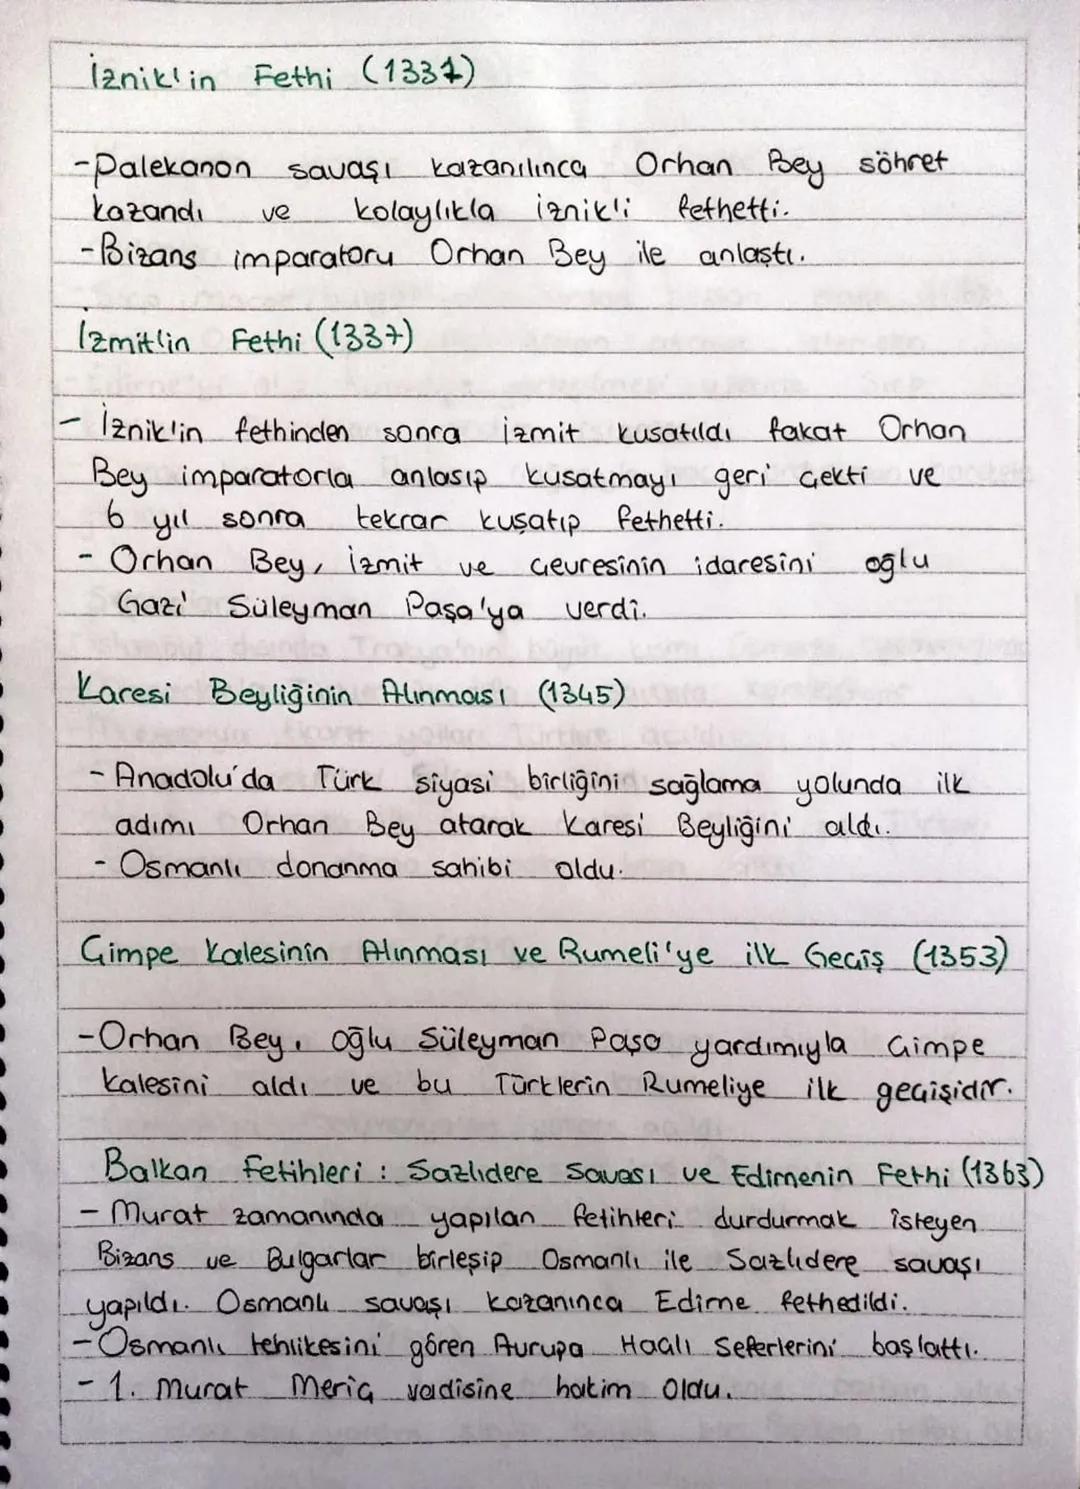 İznik'in Fethi (1331)
-Palekanon savaşı kazanılınca Orhan Bey söhret
kazandı ve kolaylıkla iznik'i fethetti.
-Bizans imparatoru Orhan Bey ile anlaştı.
İzmit'in Fethi (1337)
- İznik'in fethinden sonra izmit kusatıldı fakat Orhan
Bey imparatorla anlasıp kusatmayı geri çekti ve
6 yıl sonra tekrar kuşatıp fethetti.
- Orhan Bey, İzmit ve çevresinin idaresini oğlu
Gazi Süleyman Paşa'ya verdi.
Karesi Beyliğinin Alınması (1345)
- Anadolu'da Türk siyasi birliğini sağlama yolunda ilk
adımı Orhan Bey atarak Karesi Beyliğini aldı.
- Osmanlı donanma sahibi oldu.
Çimpe Kalesinin Alınması ve Rumeli'ye ilk Geçiş (1353)
-Orhan Bey, oğlu Süleyman Paşa yardımıyla Çimpe
kalesini aldı ve bu Türklerin Rumeliye ilk geçişidir.
Balkan Fetihleri : Sazlıdere Savası ve Edirnenin Fethi (1363)
- Murat zamanında yapılan fetihleri durdurmak isteyen
Bizans ve Bulgarlar birleşip Osmanlı ile Sazlıdere savaşı
yapıldı. Osmanlı savaşı kazanınca Edirne fethedildi.
-Osmanlı tehlikesini gören Avrupa Haçlı Seferlerini başlattı.
- 1. Murat Meriç vadisine hakim oldu.